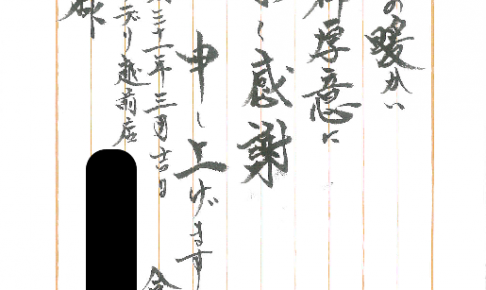 の暖かい
御厚意に
く感謝
申し上げます
三十一年三月吉日
デリ越前店